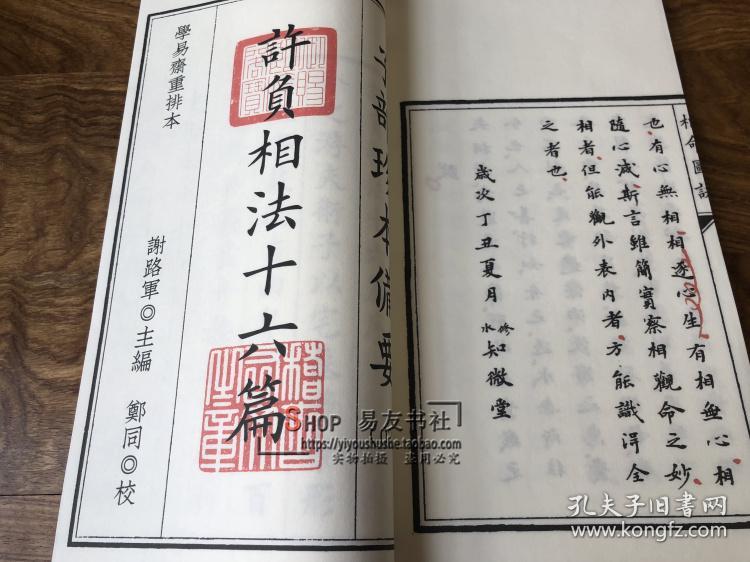 相命圖訣
也有心無相相逐心生有相無心相
隨心滅斯言雖簡實察相觀命之妙
相者但能觀外表內者方能識淂全
之者也
歲次丁丑夏月
修水
知微堂
子部珍本備要
許負相法十六篇
謝路軍◎主編
鄭同◎校
學易齋重排本
SHOP 易友书社
https://yiyoushushe.taobao.com
实物拍摄 盗用必究
孔夫子旧书网
www.kongfz.com